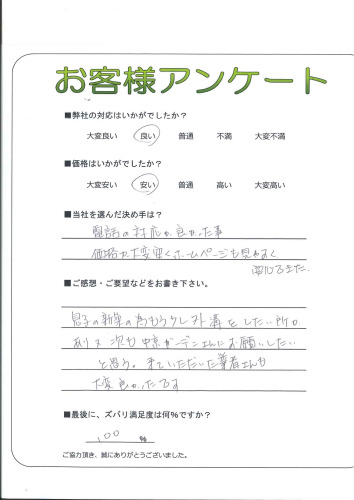 お客様アンケート
■弊社の対応はいかがでしたか?
大変良い 良い 普通 不満 大変不満
■価格はいかがでしたか?
大変安い 安い 普通 高い 大変高い
■当社を選んだ決め手は?
電話の対応が良かった事
価格が大変安くホームページも見やすく
■ご感想・ご要望などをお書き下さい。
息子の新築の為もう少し外溝をしたい所が
あり 次も中京ガーデンさんにお願いしたい
と思う。来ていただいた業者さんも
大変良かったです
■最後に、ズバリ満足度は何%ですか?
100 %
ご協力頂き、誠にありがとうございました。